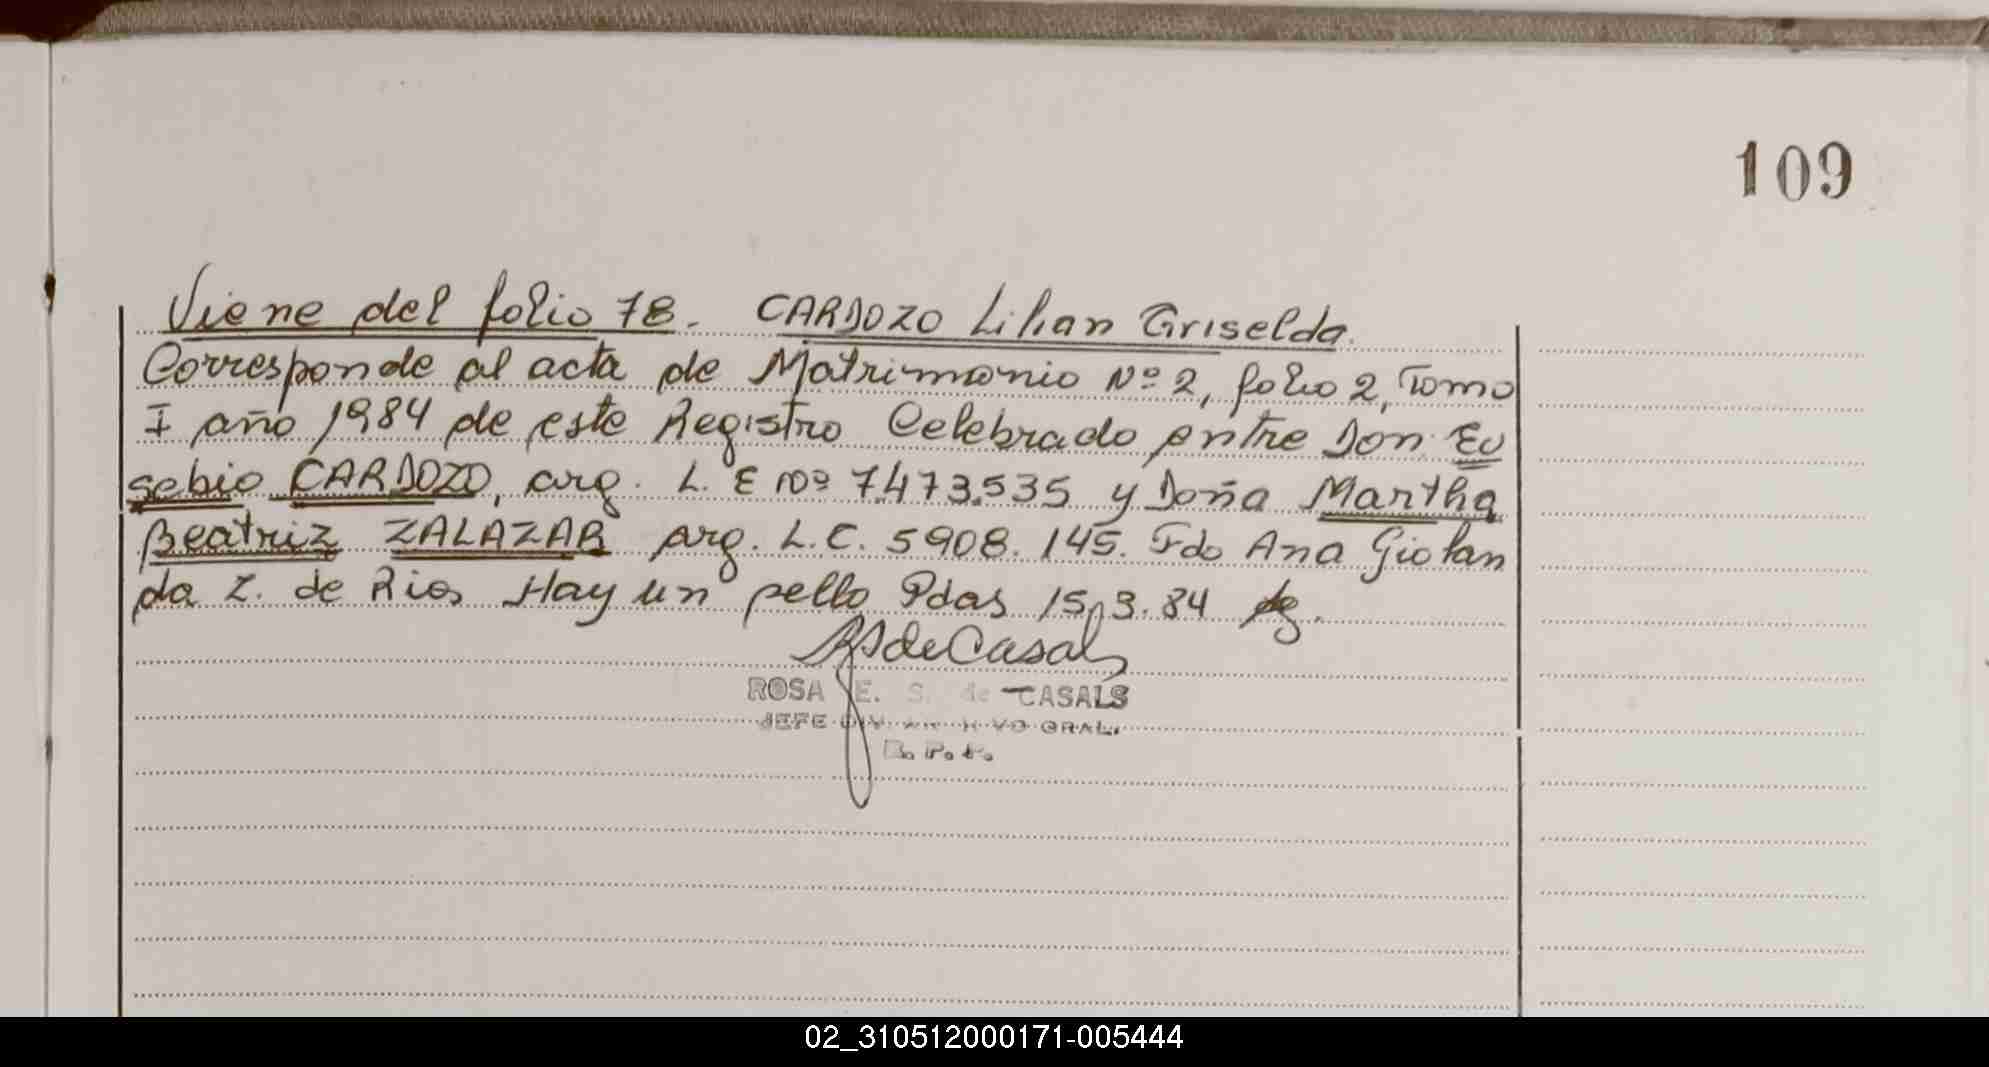 109
Viene del folio 78. CARDOZO Lilian Griselda.
Corresponde al acta de Matrimonio Nº 2, folio 2, Tomo
I año 1984 de este Registro Celebrado entre Don Eu
sebio CARDOZO, arg. L. E Nº 7.473.535 y Doña Martha
Beatriz ZALAZAR arg. L.C. 5908.145. Fdo Ana Giolan
da Z. de Rios Hay un sello Pdas 15.3.84
RSdeCasals
ROSA E. S. de CASALS
JEFE DIV. VO GRAL.
02_310512000171-005444